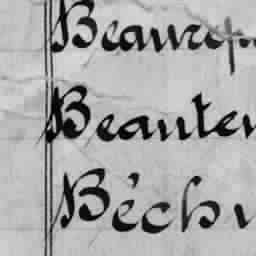 Beaurep
Beauten
Béchu